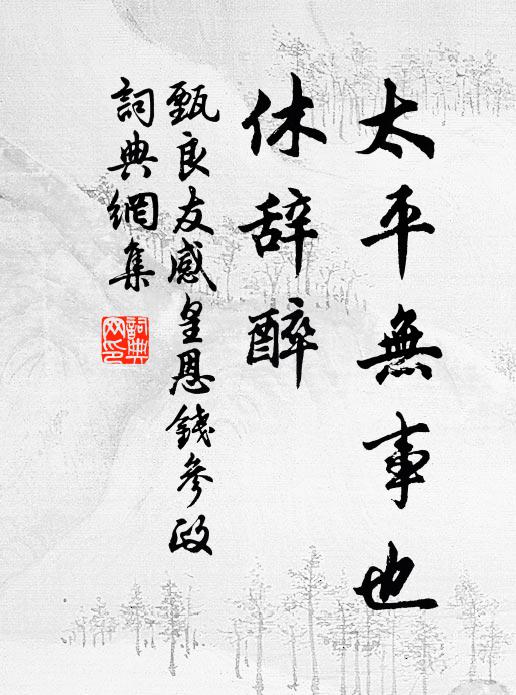 太平無事也
休辞醉
甄良友感皇恩錢參政
詞典網集
詞典
网印